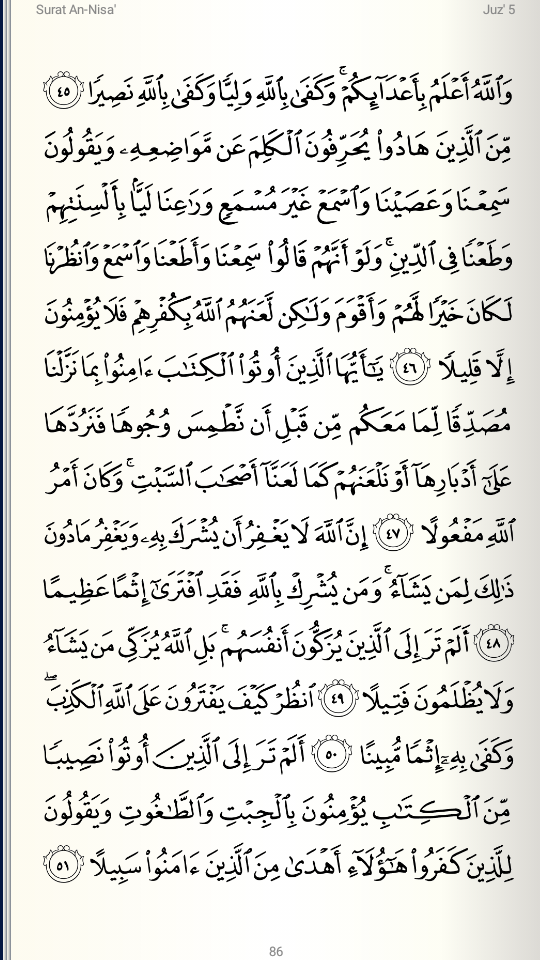 Surat An-Nisa' Juz' 5
وَٱللَّهُ أَعۡلَمُ بِأَعۡدَآئِكُمۡۚ وَكَفَىٰ بِٱللَّهِ وَلِيّٗا وَكَفَىٰ بِٱللَّهِ نَصِيرٗا ٤٥
مِّنَ ٱلَّذِينَ هَادُواْ يُحَرِّفُونَ ٱلۡكَلِمَ عَن مَّوَاضِعِهِۦ وَيَقُولُونَ
سَمِعۡنَا وَعَصَيۡنَا وَٱسۡمَعۡ غَيۡرَ مُسۡمَعٖ وَرَٰعِنَا لَيَّۢا بِأَلۡسِنَتِهِمۡ
وَطَعۡنٗا فِي ٱلدِّينِۚ وَلَوۡ أَنَّهُمۡ قَالُواْ سَمِعۡنَا وَأَطَعۡنَا وَٱسۡمَعۡ وَٱنظُرۡنَا
لَكَانَ خَيۡرٗا لَّهُمۡ وَأَقۡوَمَ وَلَٰكِن لَّعَنَهُمُ ٱللَّهُ بِكُفۡرِهِمۡ فَلَا يُؤۡمِنُونَ
إِلَّا قَلِيلٗا ٤٦ يَٰٓأَيُّهَا ٱلَّذِينَ أُوتُواْ ٱلۡكِتَٰبَ ءَامِنُواْ بِمَا نَزَّلۡنَا
مُصَدِّقٗا لِّمَا مَعَكُم مِّن قَبۡلِ أَن نَّطۡمِسَ وُجُوهٗا فَنَرُدَّهَا
عَلَىٰٓ أَدۡبَارِهَآ أَوۡ نَلۡعَنَهُمۡ كَمَا لَعَنَّآ أَصۡحَٰبَ ٱلسَّبۡتِۚ وَكَانَ أَمۡرُ
ٱللَّهِ مَفۡعُولًا ٤٧ إِنَّ ٱللَّهَ لَا يَغۡفِرُ أَن يُشۡرَكَ بِهِۦ وَيَغۡفِرُ مَا دُونَ
ذَٰلِكَ لِمَن يَشَآءُۚ وَمَن يُشۡرِكۡ بِٱللَّهِ فَقَدِ ٱفۡتَرَىٰٓ إِثۡمًا عَظِيمًا
٤٨ أَلَمۡ تَرَ إِلَى ٱلَّذِينَ يُزَكُّونَ أَنفُسَهُمۚ بَلِ ٱللَّهُ يُزَكِّي مَن يَشَآءُ
وَلَا يُظۡلَمُونَ فَتِيلًا ٤٩ ٱنظُرۡ كَيۡفَ يَفۡتَرُونَ عَلَى ٱللَّهِ ٱلۡكَذِبَۖ
وَكَفَىٰ بِهِۦٓ إِثۡمٗا مُّبِينًا ٥٠ أَلَمۡ تَرَ إِلَى ٱلَّذِينَ أُوتُواْ نَصِيبٗا
مِّنَ ٱلۡكِتَٰبِ يُؤۡمِنُونَ بِٱلۡجِبۡتِ وَٱلطَّٰغُوتِ وَيَقُولُونَ
لِلَّذِينَ كَفَرُواْ هَٰٓؤُلَآءِ أَهۡدَىٰ مِنَ ٱلَّذِينَ ءَامَنُواْ سَبِيلًا ٥١
86